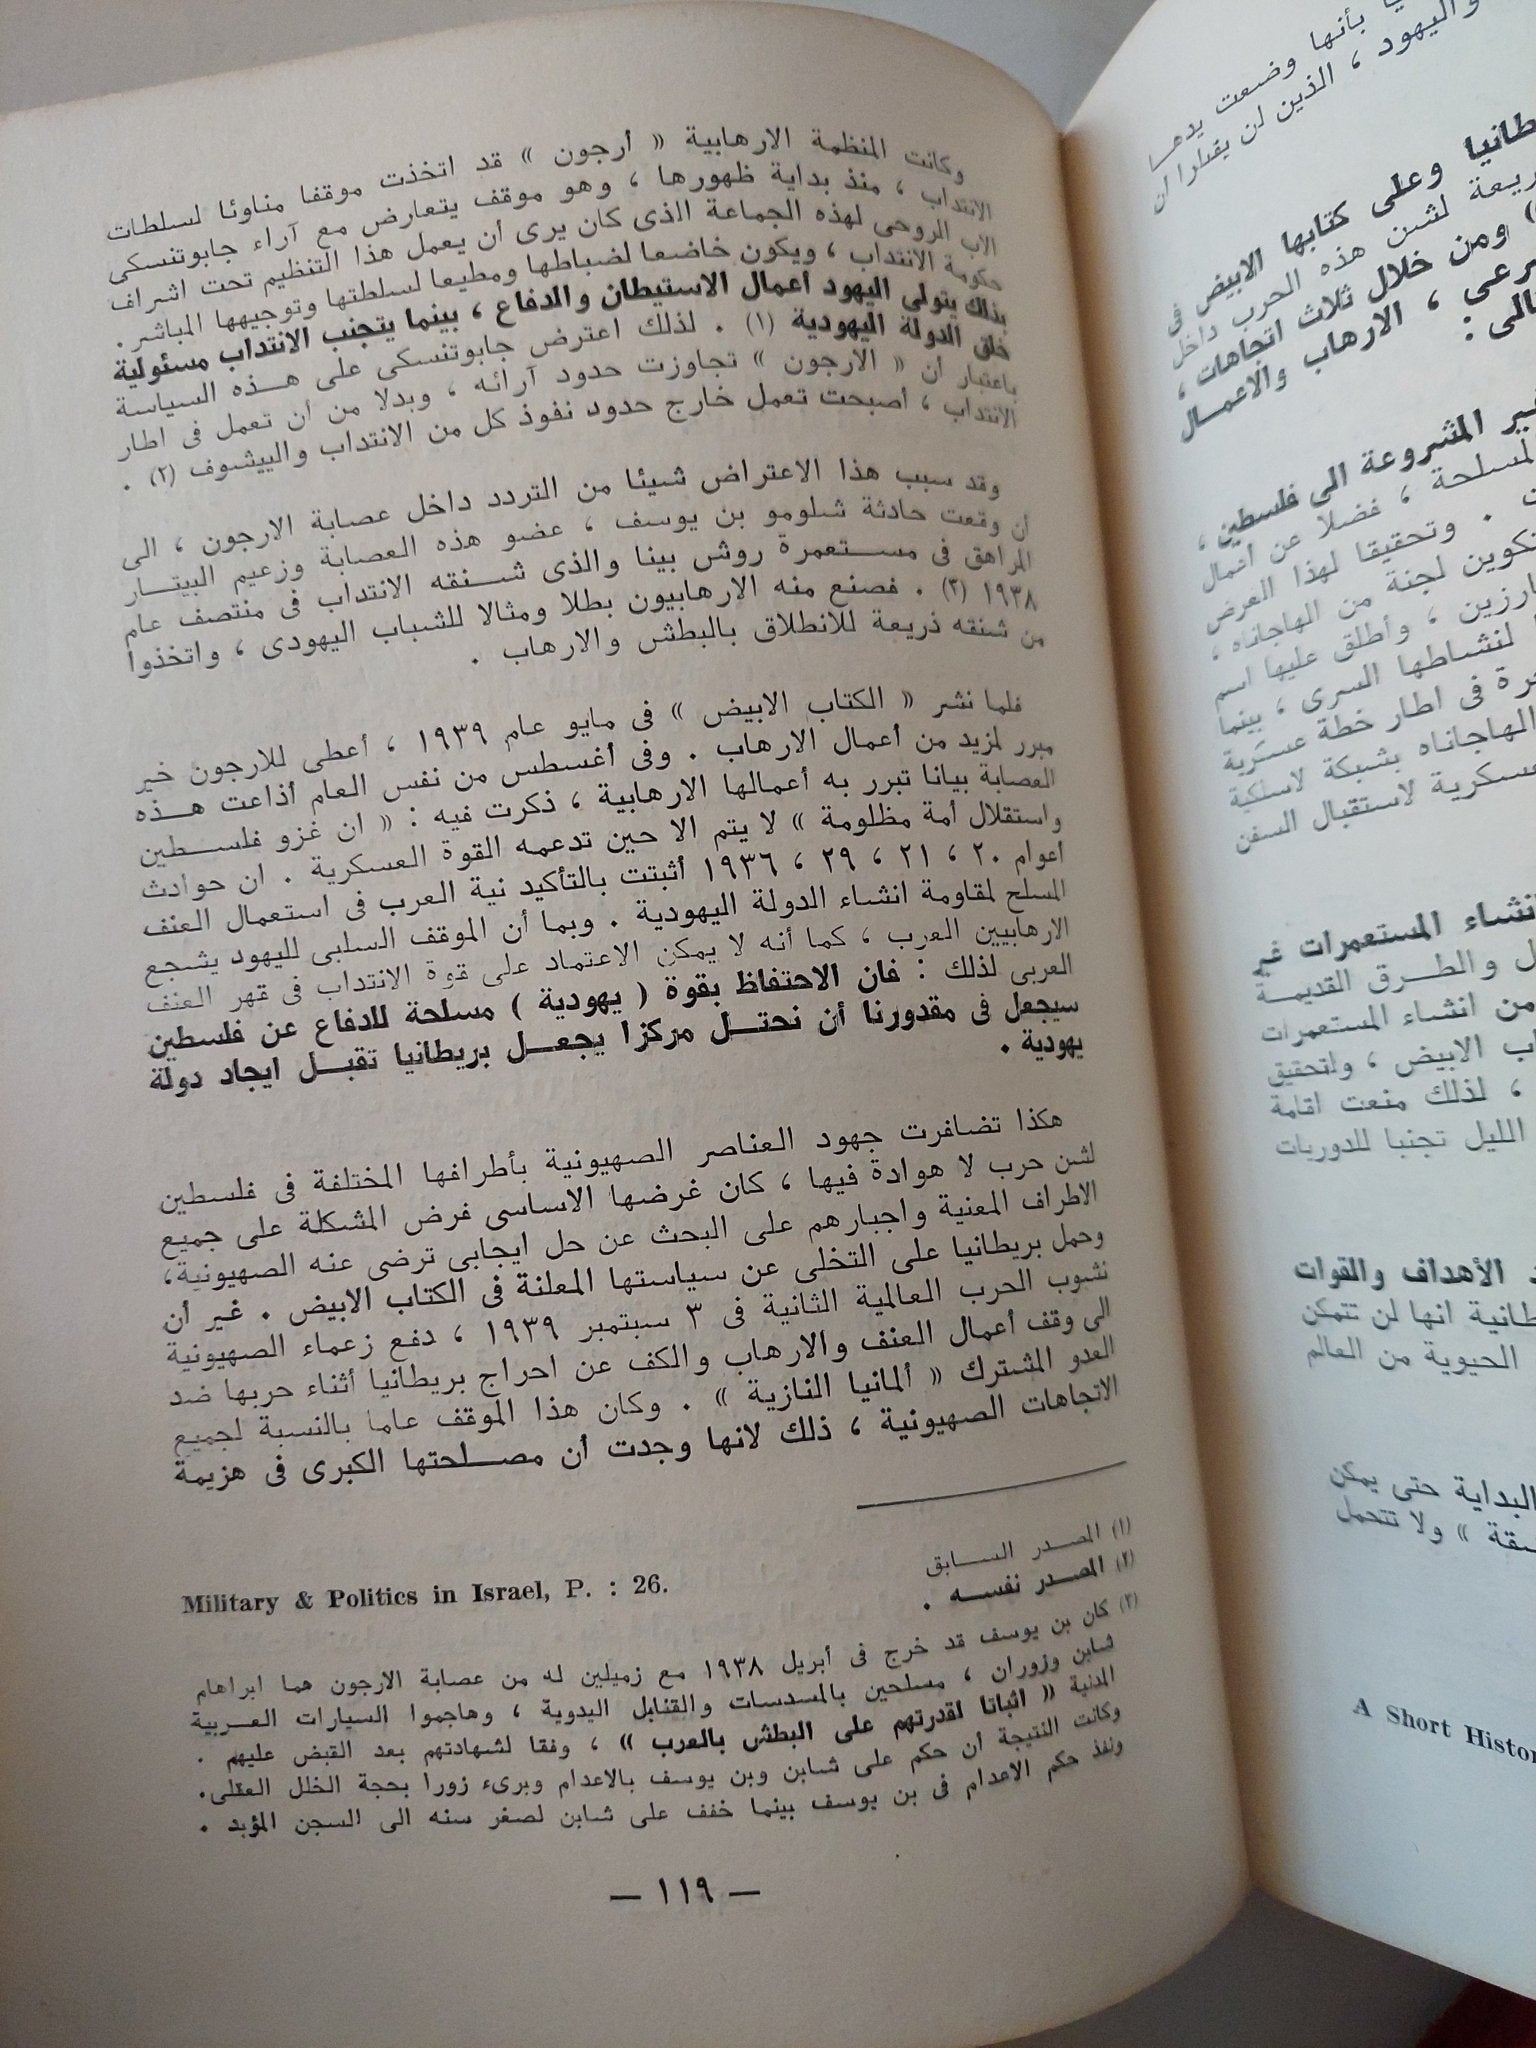 وكانت المنظمة الارهابية « أرجون » قد اتخذت موقفا مناوئا لسلطات
الانتداب ، منذ بداية ظهورها ، وهو موقف يتعارض مع آراء جابوتنسكى
الأب الروحى لهذه الجماعة الذى كان يرى أن يعمل هذا التنظيم تحت اشراف
حكومة الانتداب ، ويكون خاضعا لضباطها ومطيعا لسلطتها وتوجيهها المباشر .
بذلك يتولى اليهود أعمال الاستيطان والدفاع ، بينما يتجنب الانتداب مسئولية
خلق الدولة اليهودية (١) . لذلك اعترض جابوتنسكى على هذه السياسة
باعتبار أن « الارجون » تجاوزت حدود آرائه ، وبدلا من أن تعمل فى اطار
الانتداب ، أصبحت تعمل خارج حدود نفوذ كل من الانتداب والييشوف (٢) .
وقد سبب هذا الاعتراض شيئا من التردد داخل عصابة الارجون ، الى
أن وقعت حادثة شلومو بن يوسف ، عضو هذه العصابة وزعيم البيتار
المراهق فى مستعمرة روش بينا والذى شنقه الانتداب فى منتصف عام
١٩٣٨ (٣) . فصنع منه الارهابيون بطلا ومثالا للشباب اليهودى ، واتخذوا
من شنقه ذريعة للانطلاق بالبطش والارهاب .
فلما نشر « الكتاب الابيض » فى مايو عام ١٩٣٩ ، أعطى للارجون خير
مبرر لمزيد من أعمال الارهاب . وفى أغسطس من نفس العام أذاعت هذه
العصابة بيانا تبرر به أعمالها الارهابية ، ذكرت فيه : « ان غزو فلسطين
واستقلال أمة مظلومة » لا يتم الا حين تدعمه القوة العسكرية . ان حوادث
أعوام ٢٠ ، ٢١ ، ٢٩ ، ١٩٣٦ أثبتت بالتأكيد نية العرب فى استعمال العنف
المسلح لمقاومة انشاء الدولة اليهودية . وبما أن الموقف السلبى لليهود يشجع
الارهابيين العرب ، كما أنه لا يمكن الاعتماد على قوة الانتداب فى قهر العنف
العربى لذلك : فان الاحتفاظ بقوة ( يهودية ) مسلحة للدفاع عن فلسطين
سيجعل فى مقدورنا أن نحتل مركزا يجعل بريطانيا تقبل ايجاد دولة
يهودية .
هكذا تضافرت جهود العناصر الصهيونية بأطرافها المختلفة فى فلسطين
لشن حرب لا هوادة فيها ، كان غرضها الاساسى فرض المشكلة على جميع
الاطراف المعنية واجبارهم على البحث عن حل ايجابى ترضى عنه الصهيونية،
وحمل بريطانيا على التخلى عن سياستها المعلنة فى الكتاب الابيض . غير أن
نشوب الحرب العالمية الثانية فى ٣ سبتمبر ١٩٣٩ ، دفع زعماء الصهيونية
الى وقف أعمال العنف والارهاب والكف عن احراج بريطانيا أثناء حربها ضد
العدو المشترك « ألمانيا النازية » . وكان هذا الموقف عاما بالنسبة لجميع
الاتجاهات الصهيونية ، ذلك لانها وجدت أن مصلحتها الكبرى فى هزيمة
(١) المصدر السابق
Military & Politics in Israel, P. : 26.
(٢) المصدر نفسه .
(٣) كان بن يوسف قد خرج فى أبريل ١٩٣٨ مع زميلين له من عصابة الارجون هما ابراهام
شابن وزوران ، مسلحين بالمسدسات والقنابل اليدوية ، وهاجموا السيارات العربية
المدنية « اثباتا لقدرتهم على البطش بالعرب » ، وفقا لشهادتهم بعد القبض عليهم .
وكانت النتيجة أن حكم على شابن وبن يوسف بالاعدام وبرىء زورا بحجة الخلل العقلى.
ونفذ حكم الاعدام فى بن يوسف بينما خفف على شابن لصغر سنه الى السجن المؤبد .
— ١١٩ —
بأنها وضعت يدها
واليهود ، الذين لن يقبلوا ان
وعلى كتابها الابيض فى
لشن هذه الحرب داخل
ومن خلال ثلاث اتجاهات ،
، الارهاب والاعمال
المشروعة الى فلسطين ،
، فضلا عن أعمال
. وتحقيقا لهذا الغرض
لجنة من الهاجاناه ،
، وأطلق عليها اسم
لنشاطها السرى ، بينما
فى اطار خطة عسكرية
الهاجاناه بشبكة لاسلكية
لاستقبال السفن
انشاء المستعمرات غير
والطرق القديمة
من انشاء المستعمرات
الابيض ، ولتحقيق
، لذلك منعت اقامة
الليل تجنبا للدوريات
الأهداف والقوات
انها لن تتمكن
الحيوية من العالم
البداية حتى يمكن
» ولا تتحمل
A Short